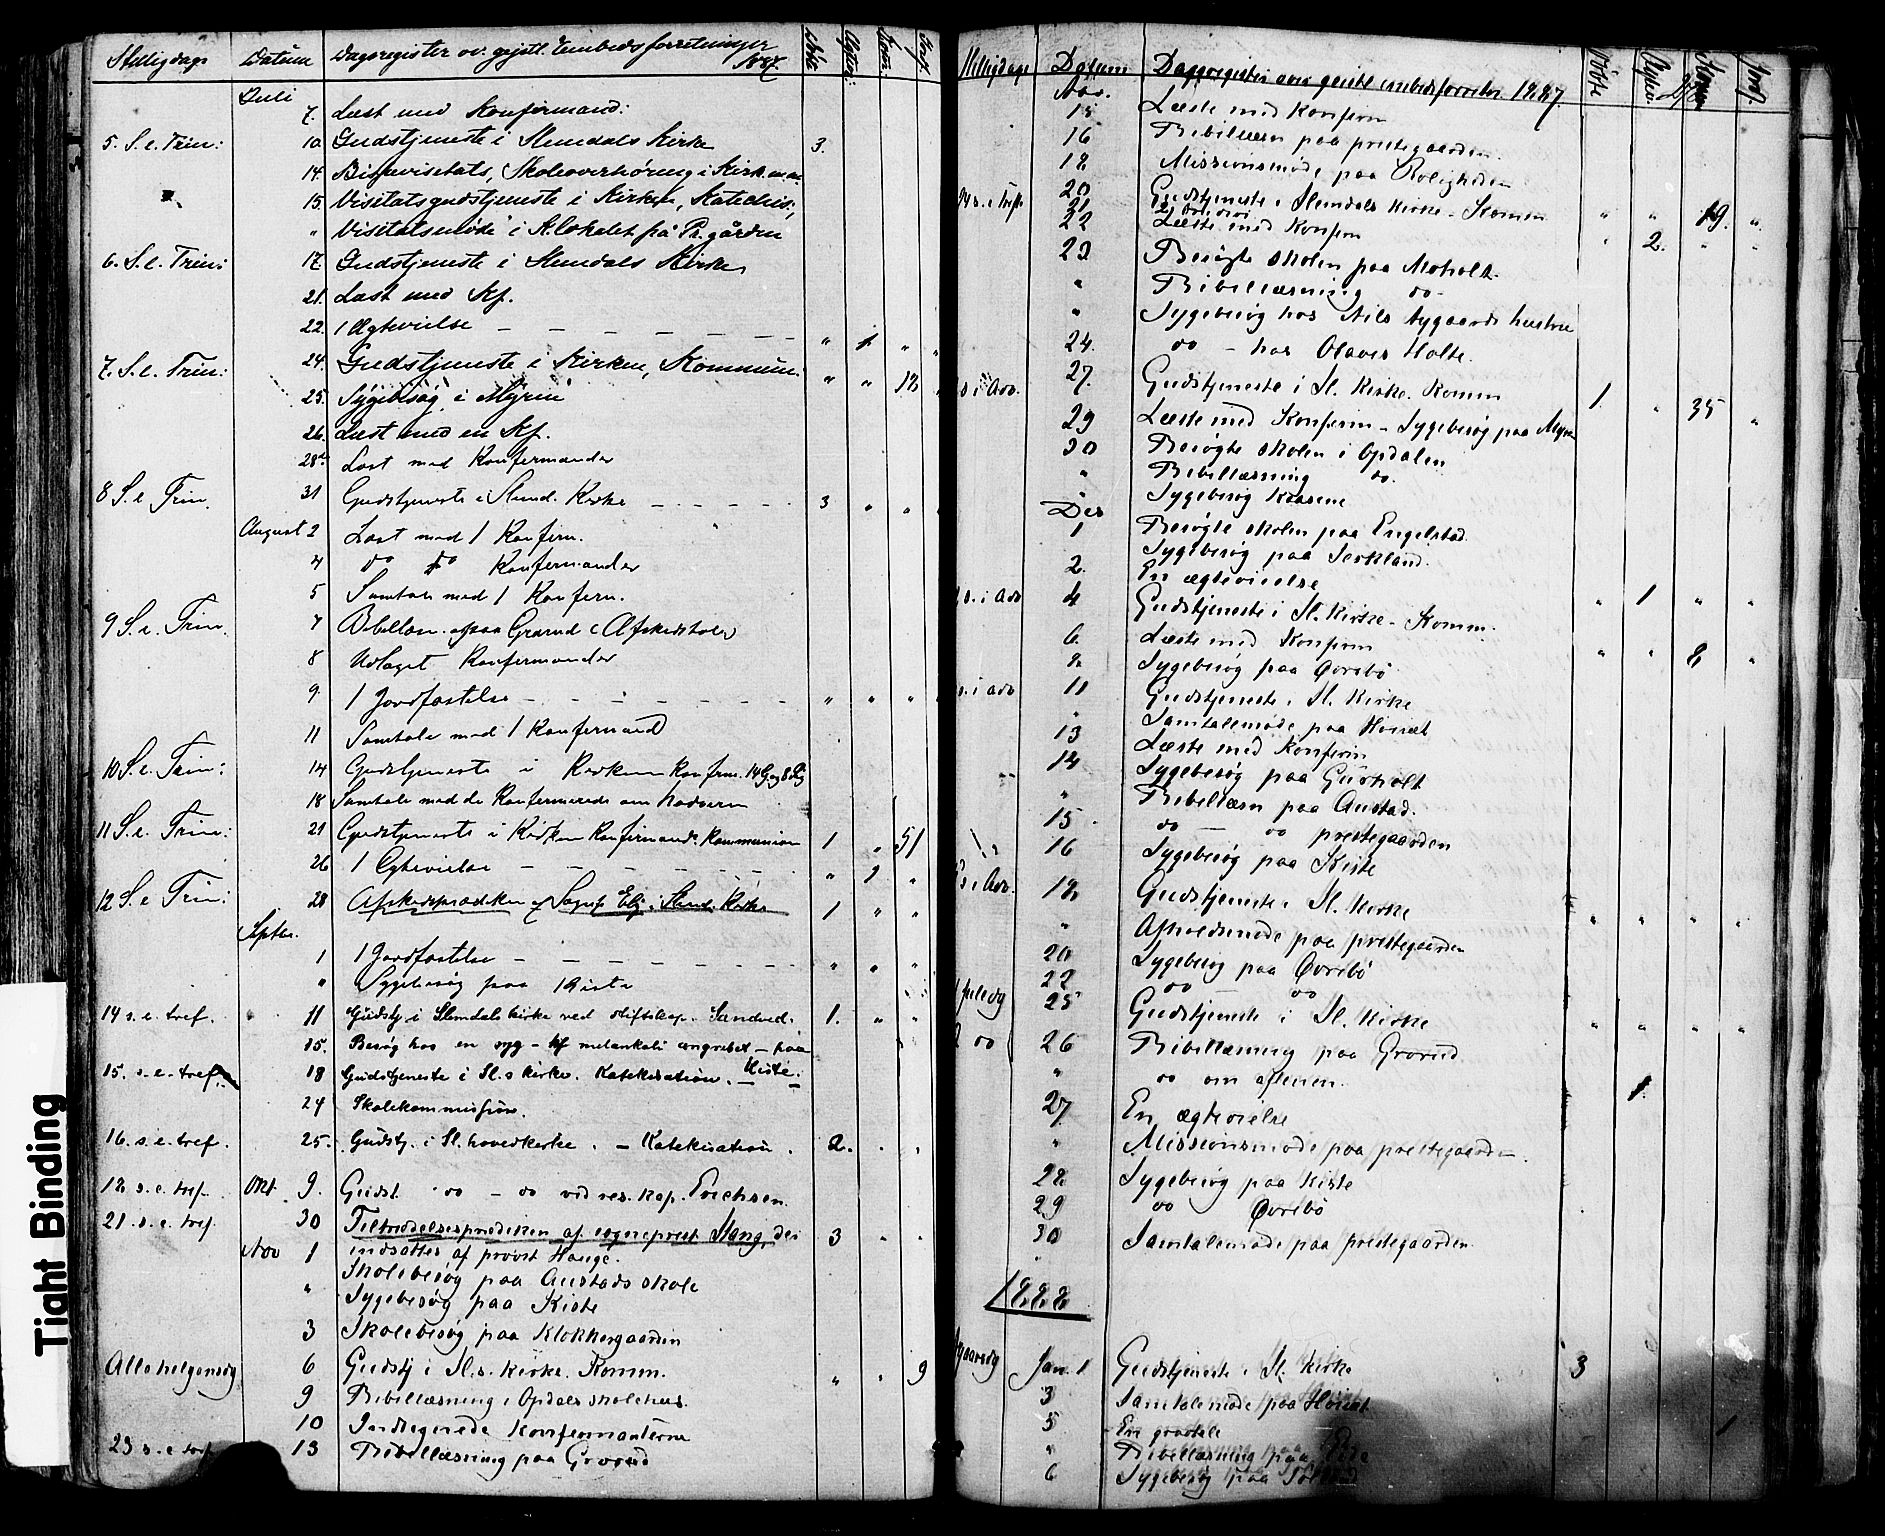 Helligdage Datum Dagsregister ov. gejstl. Embedsforretninger 1887. Døbte Ægtev: Kom: Jordf.
Juli
7. Læst med Konfirmand:
5. S. e. Trin: 10 Gudstjeneste i Slemdals Kirke 3.
14. Bispevisitats, Skoleoverhøring i Kirk.
15. Visitatsgudstjeneste i Kirken, Katechis:,
" Visitatsmøde i Sk.lokalet på Pr.gården
6. S. e. Trin: 17. Gudstjeneste i Slemdals Kirke
21. Læst med Kf.
22. 1 Ægtevielse — — — — — — — " 1 " "
7. S. e. Trin: 24. Gudstjeneste i Kirken, Kommun. " " 12
25. Sygebesøg i Myren
26. Læst med en Kf.
28. Læst med Konfirmander
8 S. e Trin. 31 Gudstjeneste i Slemd. Kirke 3 " " "
August 2 Læst med 1 Konfirm.
4 do do Konfirmander
5 Samtale med 1 Konfirm.
9 S. e. Trin. 7 Bibellæsn. paa Grorud (Afskedstale)
8 Udlaget Konfirmander
9 1 Jordfæstelse — — — — — — " " "
11 Samtale med 1 Konfirmand
10 S. e. Trin: 14 Gudstjeneste i Kirken Konfirm. 14 G. og 8 Pig
18 Samtale med de Konfirmerede om Nadveren
11 S. e. Trin: 21 Gudstjeneste i Kirken Konfirmand. Kommunion 1 " 51
26 1 Egtevielse — — — — — — " 1 "
12 S. e Trin: 28 Afskedsprædiken af Sognepr. Elj. i Slemd. Kirke 1 " "
Septbr.
1 1 Jordfæstelse — — — — — — " " "
" Sygebesøg paa Kiste
14 s. e. tref. 11 Gudstj. i Slemdals kirke ved stiftskap. Sandved. 1. " "
15. Besøg hos en syg - af melankoli angrebet - paa Kiste.
15. s. e. tref. 18 Gudstjeneste i Sl.s kirke. Katekisation.
24 Skolekommission.
16. s. e. tref. 25. Gudstj. i Sl. hovedkirke. — Katekisation. 2. " "
18 s. e. tref. Okt. 9. Gudst. do — do ved res. kap. Erichsen.
21. s. e. tref 30 Tiltrædelsesprædiken af sogneprest Stang, der 3 " "
indsattes af provst Hauge.
Nov 1 Skolebesøg paa Austads skole
" Sygebesøg paa Kiste
3 Skolebesøg paa Klokkergaarden
Allehelgensdg 6 Gudstj i Sl.s. kirke. Komm. " " 9
9 Bibellæsning i Opdals skolehus.
10 Indtegnede Konfirmanterne
23 s. e tref 13 Bibellæsning paa Grorud
Helligdage Datum Dagsregister over geistl. embedsforretn. 1887. Døbte Ægtev. Komm. Jordf.
Nov.
15 Læste med Konfirm
16 Bibellæsn paa prestegaarden.
18 Missionsmøde paa Roligheden
24 s. e Tref. 20 Gudstjeneste i Slemdals Kirke - Komm " " 19. "
21
22 Læste med Konfirm " 2. " "
23. Besøgte skolen paa Moholt.
" Bibellæsning do -
" Sygebesøg hos Nils Nygaards hustru
24. do - hos Olaves Holte.
s i Adv. 27. Gudstjeneste i Sl. Kirke. Komm 1. " 35 "
29 Læste med Konfirm - Sygebesøg paa Myren
30 Besøgte skolen i Opdalen
" Bibellæsning do.
" Sygebesøg Kaasene
Des
1 Besøgte skolen paa Engelstad
Sygebesøg paa Serkland.
2. En ægtevielse " 1 " "
s. i Adv 4 Gudstjeneste i Sl. Kirke - Komm. " " 8 "
6. Læste med Konfirm
8 Sygebesøg paa Øvrebø
s. i adv 11 Gudstjeneste i Sl. Kirke
" Samtalemøde paa Hønæt
13 Læste med Konfirm
14 Sygebesøg paa Gurholt
" Bibellæsn paa Austad.
15 do — do prestegaarden
16 Sygebesøg paa Kiste
s i Adv. 18 Gudstjeneste i Sl. Kirke " " " "
" Afholdsmøde paa prestegaarden
20 Sygebesøg paa Øvrebø
22 do — do
1 juledg 25 Gudstjeneste i Sl. Kirke " " " "
2 do 26 Bibellæsning paa Grorud
" do om aftenen.
27. En ægtevielse 1.
" Missionsmøde paa prestegaarden.
28 Sygebesøg paa Kiste
29 do Øvrebø
30 Samtalemøde paa prestegaarden.
1888
Nyaarsdg Jan. 1 Gudstjeneste i Sl. Kirke 3
3 Samtalemøde paa Hønæt
5 En gravtale 1
" Bibellæsning paa
6 Sygebesøg paa
Tight Binding